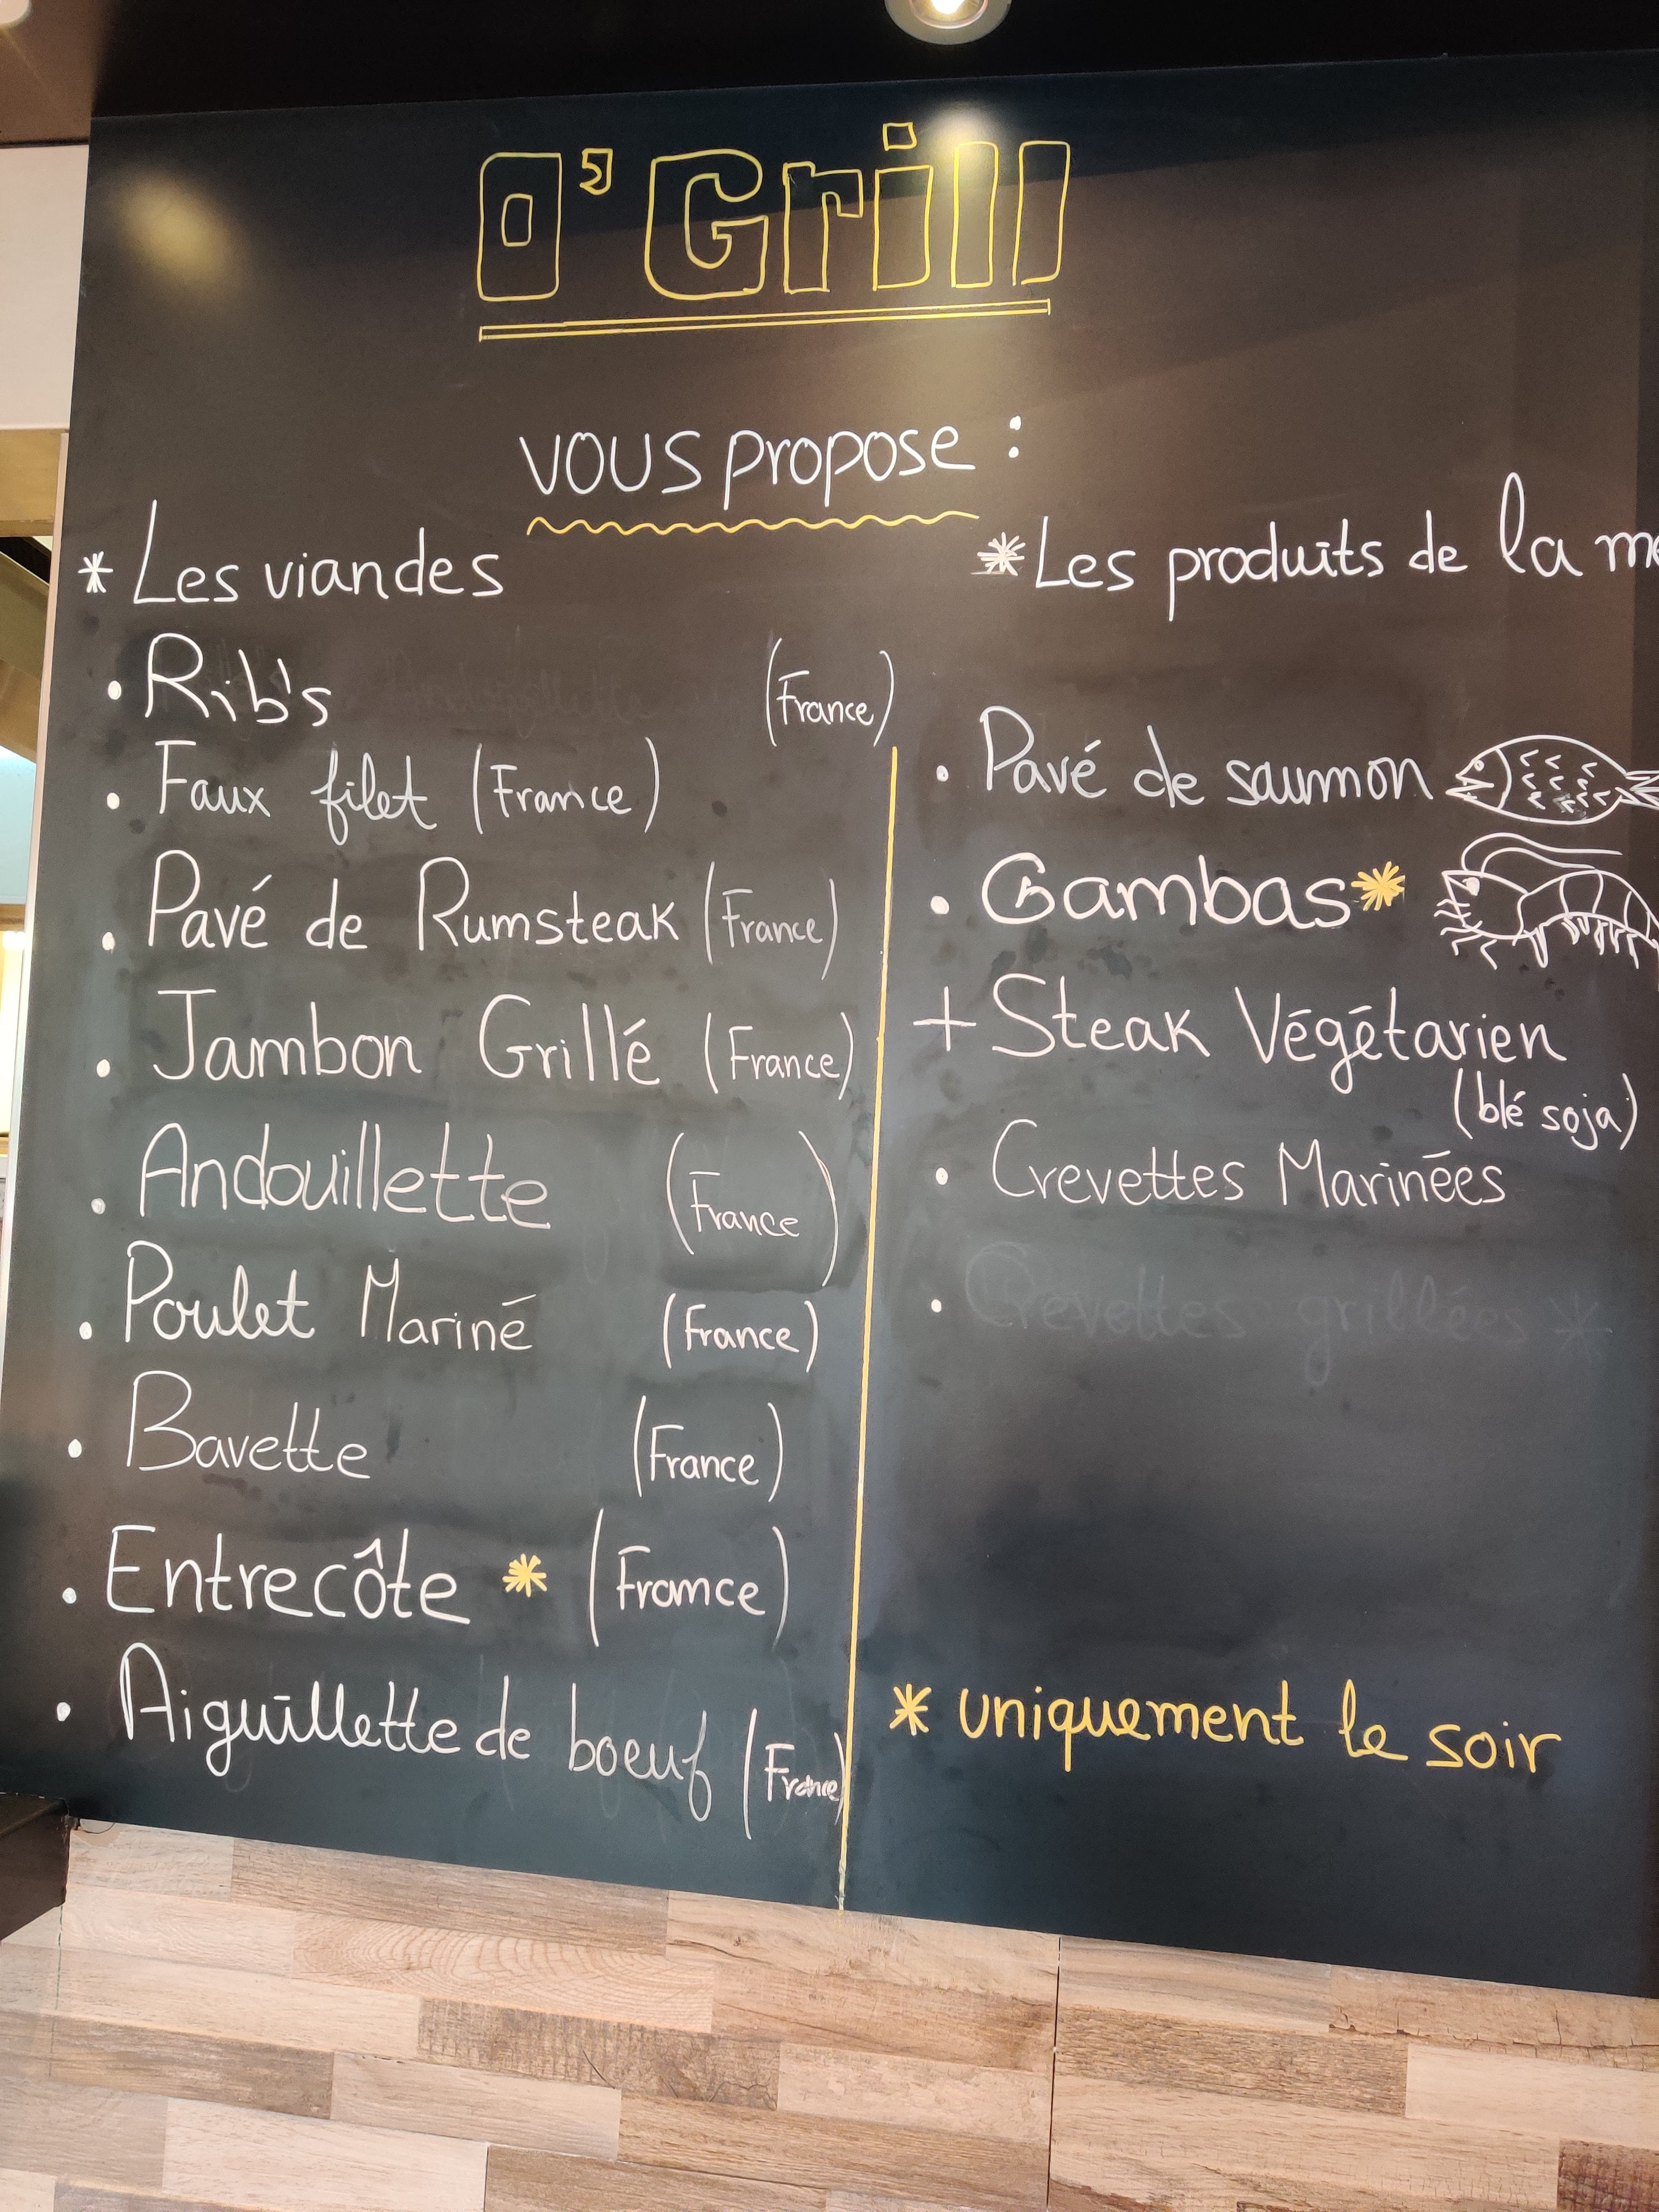 O'Grill
vous propose :
* Les viandes
• Rib's (France)
• Faux filet (France)
• Pavé de Rumsteak (France)
• Jambon Grillé (France)
• Andouillette (France)
• Poulet Mariné (France)
• Bavette (France)
• Entrecôte * (France)
• Aiguillette de boeuf (France)
* Les produits de la me
• Pavé de saumon
• Gambas *
+ Steak Végétarien
(blé soja)
• Crevettes Marinées
• Crevettes grillées *
* uniquement le soir